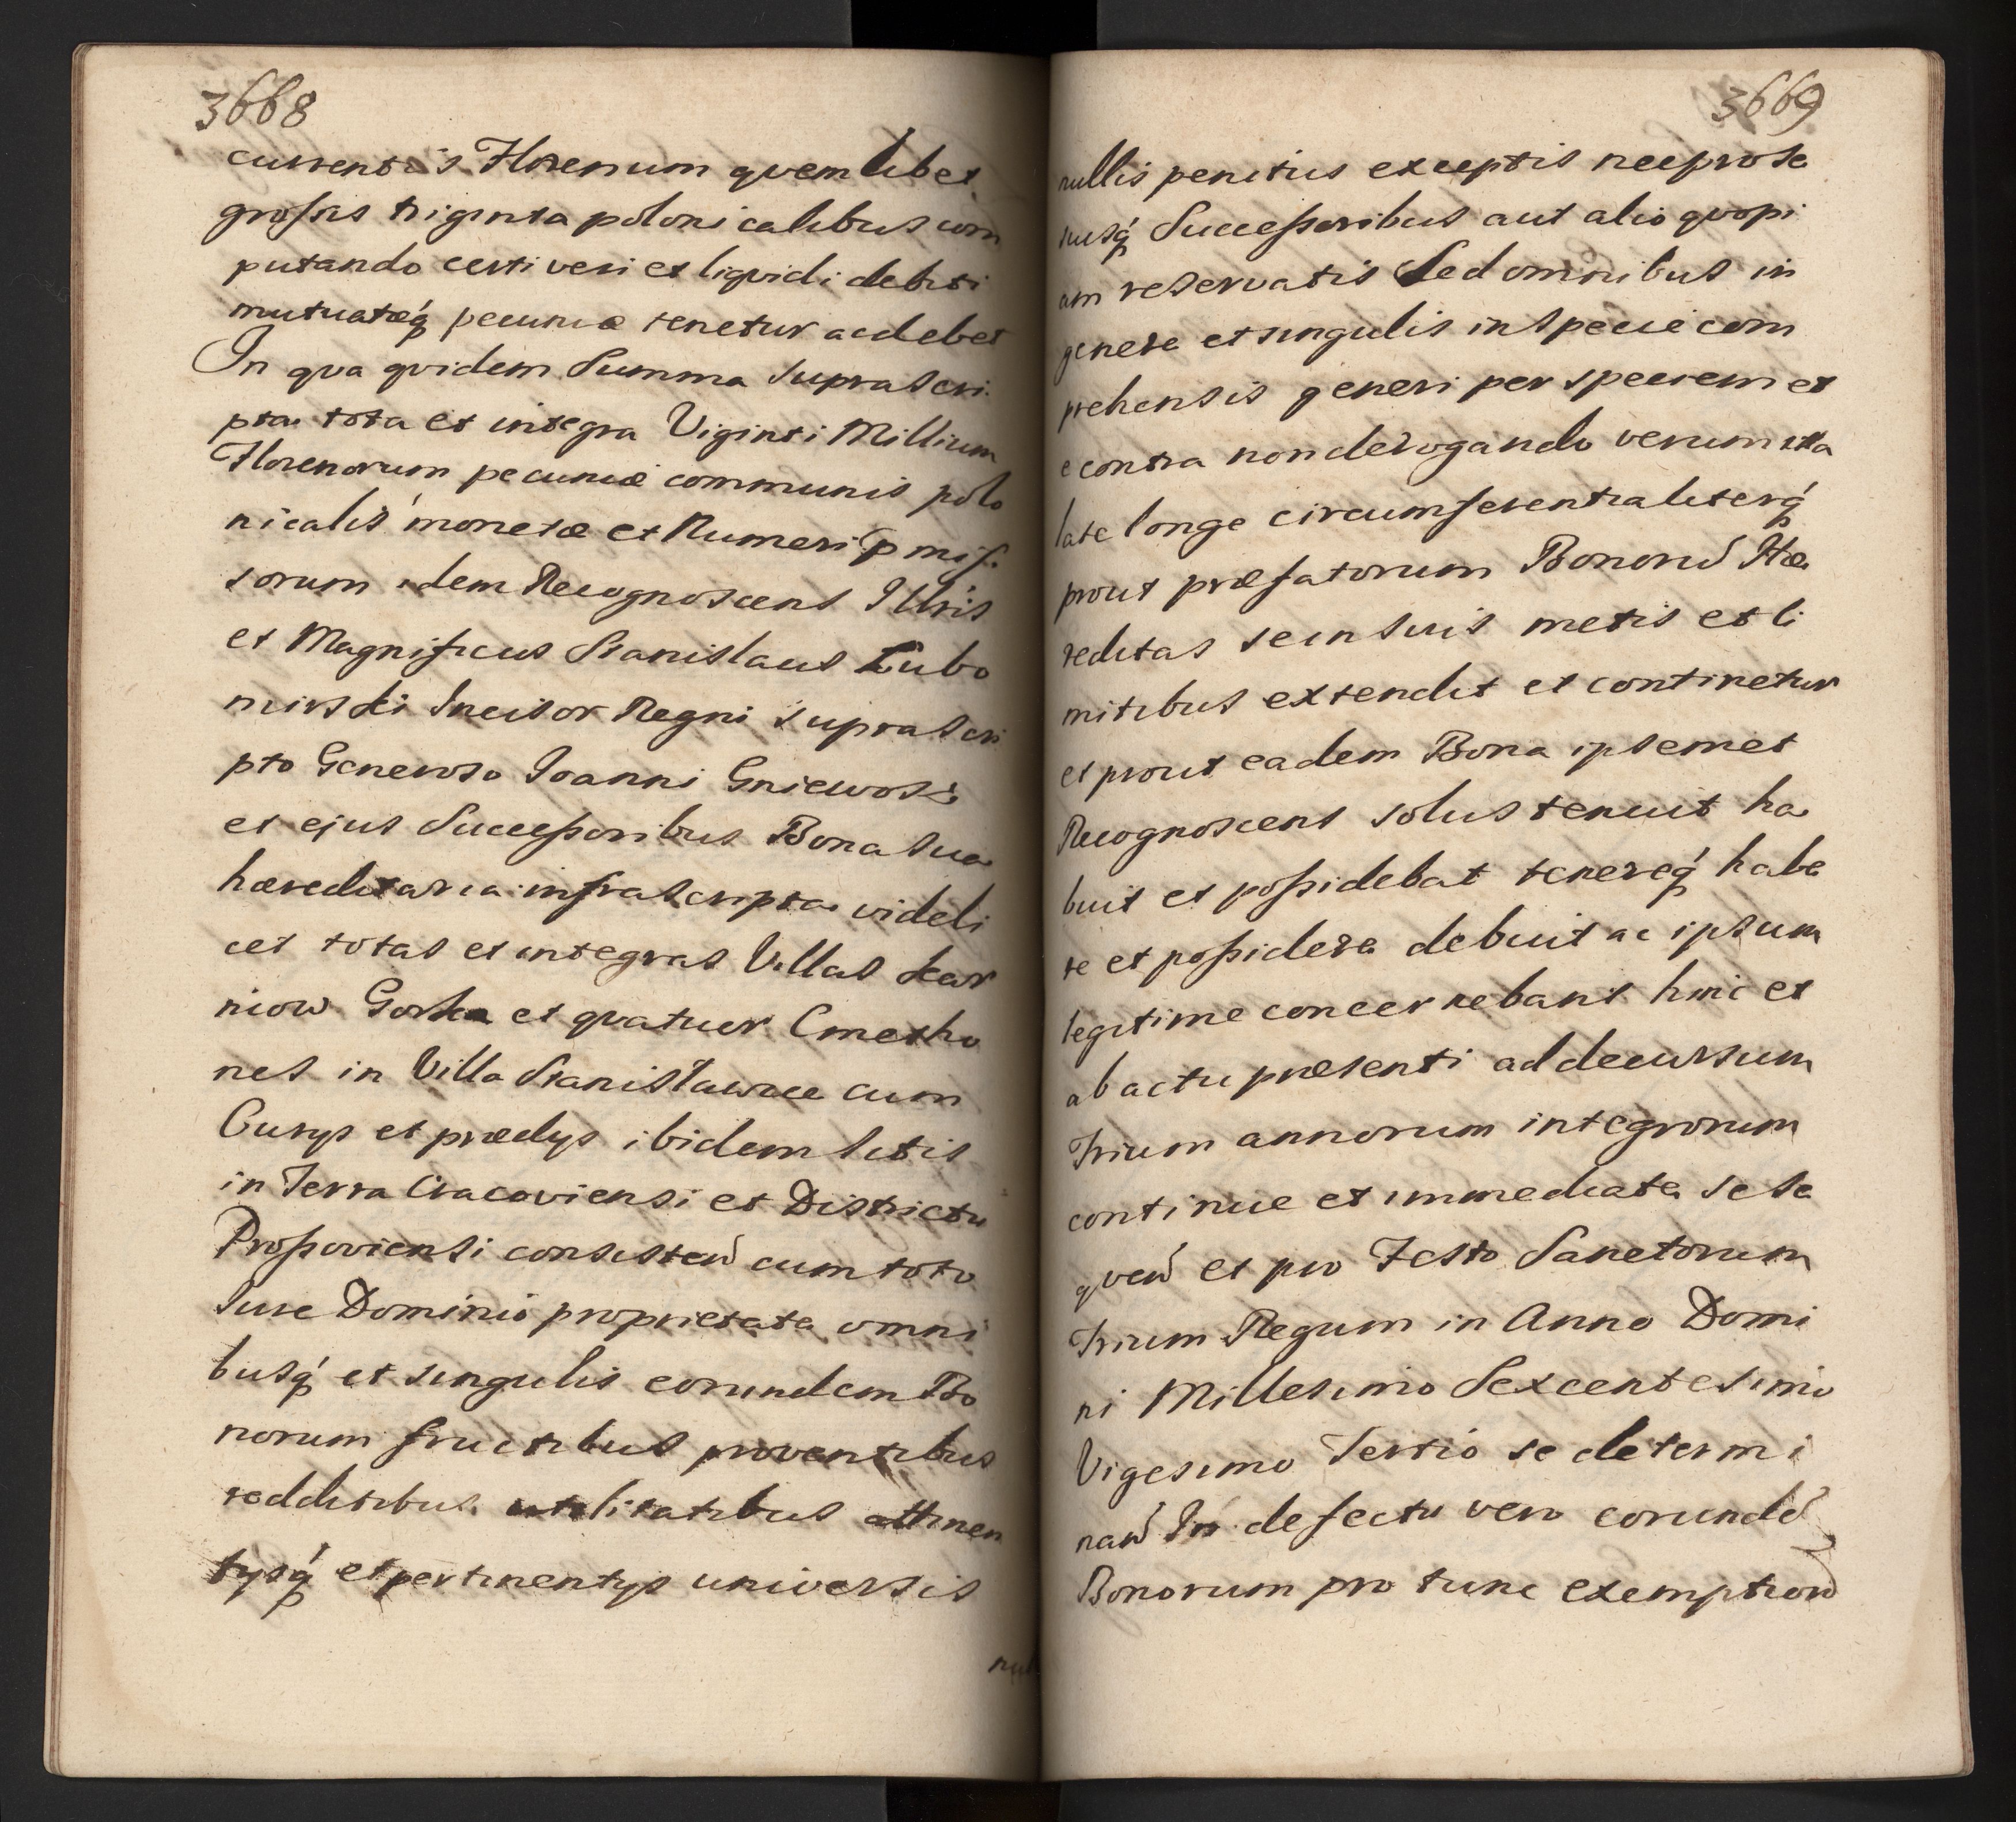 3668
currentis Florenum quemlibet
grossis triginta polonicalibus com
putando certi veri et liqvidi debiti
mutuatæq́ pecuniæ tenetur ac debet
In qva qvidem Summa suprascri
pta tota et integra Viginti Millium
Florenorum pecuniæ communis polo
nicalis monetæ et Numeri pmis
sorum idem Recognoscens Illris
et Magnificus Stanislaus Lubo
mirski Incisor Regni suprascri
pto Generoso Joanni Gniewosz
et ejus Successoribus Bona sua
hæreditaria infrascripta videli
cet totas et integras Villas
niow Gorka et qvatuor Cmetho
nes in Villa Stanisławice cum
Curys et prædys ibidem sitis
in Terra Cracoviensi et Districtu
Prossoviensi consisteñ cum toto
Jure Dominio proprietate omni
busq́ et singulis eorundem Bo
norum fructibus proventibus
redditibus utilitatibus attinen
tysq́ et pertinentys universis
nul
3669
nullis penitus exceptis nec pro se
suisq́ Successoribus aut alio qvopi
am reservatis Sed omnibus in
genere et singulis in specie com
prehensis generi per speciem et
e contra non derogando verum ita
late longe circumferentialiterq́
prout præfatorum Bonorũ Hæ
reditas se in suis metis et li
mitibus extendit et continetur
et prout eadem Bona ipsemet
Recognoscens solus tenuit ha
buit et possidebat tenereq́ habe
re et possidere debuit ac ipsum
legitime concernebant hinc et
ab actu præsenti ad decursum
trium annorum integrorum
continue et immediate sese
queñ et pro Festo Sanctorum
Trium Regum in Anno Domi
ni Millesimo Sexcentesimo
Vigesimo Tertio se determi
nañ In defectu vero eorundẽ
Bonorum pro tunc exemptioñ